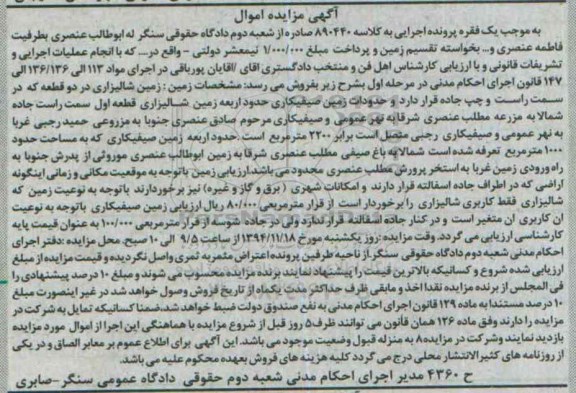 آگهی مزایده اموال
به موجب یک فقره پرونده اجرایی به کلاسه ۸۹۰۴۴۰ صادره از شعبه دوم دادگاه حقوقی سنگر له ابوطالب عنصری بطرفیت
فاطمه عنصری و... بخواسته تقسیم زمین و پرداخت مبلغ ۱/۰۰۰/۰۰۰ نیمعشر دولتی - واقع در... که با انجام عملیات اجرایی و
تشریفات قانونی و با ارزیابی کارشناس اهل فن و منتخب دادگستری آقای /آقایان پورباقی در اجرای مواد ۱۱۳ الی ۱۳۶/۱۳۶ الی
۱۴۷ قانون اجرای احکام مدنی در مرحله اول بشرح زیر بفروش می رسد: مشخصات زمین : زمین شالیزاری در دو قطعه که در
سمت راست و چپ جاده قرار دارد و حدودات زمین صیفیکاری حدود اربعه زمین شالیزاری قطعه اول سمت راست جاده
شمالا به مزرعه مطلب عنصری شرقا به نهر عمومی و صیفیکاری مرحوم صادق عنصری جنوبا به مزروعی حمید رجبی غربا
به نهر عمومی و صیفیکاری رجبی متصل است برابر ۲۲۰۰ مترمربع است .حدود اربعه زمین صیفیکاری که به مساحت حدود
۱۰۰۰ مترمربع تعرفه شده است شمالا به باغ صیفی مطلب عنصری شرقا به زمین ابوطالب عنصری موروثی از پدرش جنوبا به
راه ورودی زمین غربا به استخر پرورش مطلب عنصری محدود می باشد.ارزیابی زمین باتوجه به موقعیت مکانی و زمانی اینگونه
اراضی که در اطراف جاده اسفالته قرار دارند و امکانات شهری ( برق و گاز و غیره) نیز برخوردارند باتوجه به نوعیت زمین که
شالیزاری فقط کاربری شالیزاری را برخوردار است از قرار مترمربعی ۸۰/۰۰۰ ریال ارزیابی زمین صیفیکاری باتوجه به نوعیت
ان کاربری ان متغیر است و در کنار جاده اسفالته قرار ندارد ولی در جاده شوسه از قرار مترمربعی ۱۰۰/۰۰۰ به عنوان قیمت پایه
کارشناسی ارزیابی می گردد. وقت مزایده :روز یکشنبه مورخ ۱۳۹۴/۱۱/۱۸ از ساعت ۹/۵ الی ۱۰ صبح. محل مزایده :دفتر اجرای
احکام مدنی شعبه دوم دادگاه حقوقی سنگر.از ناحیه طرفین پرونده اعتراض مثمربه ثمری واصل نگردیده و قیمت مزایده از مبلغ
ارزیابی شده شروع و کسانیکه بالاترین قیمت را پیشنهاد نمایند برنده مزایده محسوب می شوند و مبلغ ۱۰ درصد پیشنهادی را
فی المجلس از برنده مزایده نقدا اخذ و مابقی ظرف حداکثر مدت یکماه از تاریخ فروش وصول خواهد شد. در غیر اینصورت مبلغ
۱۰ درصد مستندا به ماده ۱۲۹ قانون اجرای احکام مدنی به نفع صندوق دولت ضبط خواهد شد.ضمنا کسانیکه تمایل به شرکت در
مزایده را دارند وفق ماده ۱۲۶ همان قانون می توانند ظرف ۵ روز قبل از شروع مزایده با هماهنگی این اجرا از اموال مورد مزایده
بازدید نمایند و شرکت در مزایده به منزله قبول وضعیت موجود می باشد. این آگهی برای اطلاع عموم بر معابر الصاق و در یکی
از روزنامه های کثیرالانتشار محلی درج می گردد کلیه هزینه های فروش بعهده محکوم علیه می باشد.
ح ۴۳۶۰ مدیر اجرای احکام مدنی شعبه دوم حقوقی دادگاه عمومی سنگر-صابری